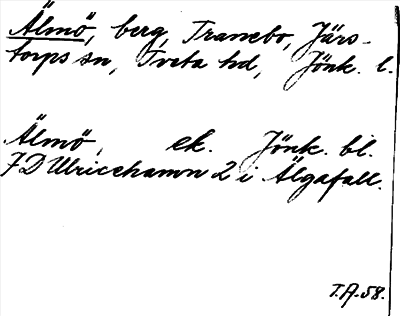 Älmö, berg, Tranebo, Järs-
torps sn, Tveta hd, Jönk. l.
Älmö, ek. Jönk. bl.
7D Ulricehamn 2 i Älgafall.
T.A.-58.